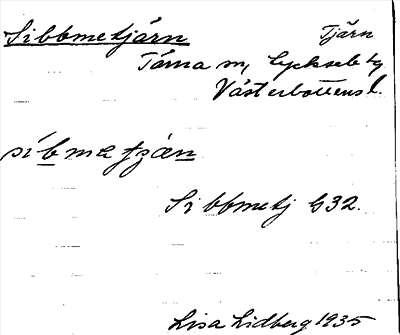 Sibbmetjärn Tjärn
Tärna sn, Lycksele tg
Västerbottens l.
síbmetjä́n
Sibbmetj G32.
Lisa Lidberg 1935